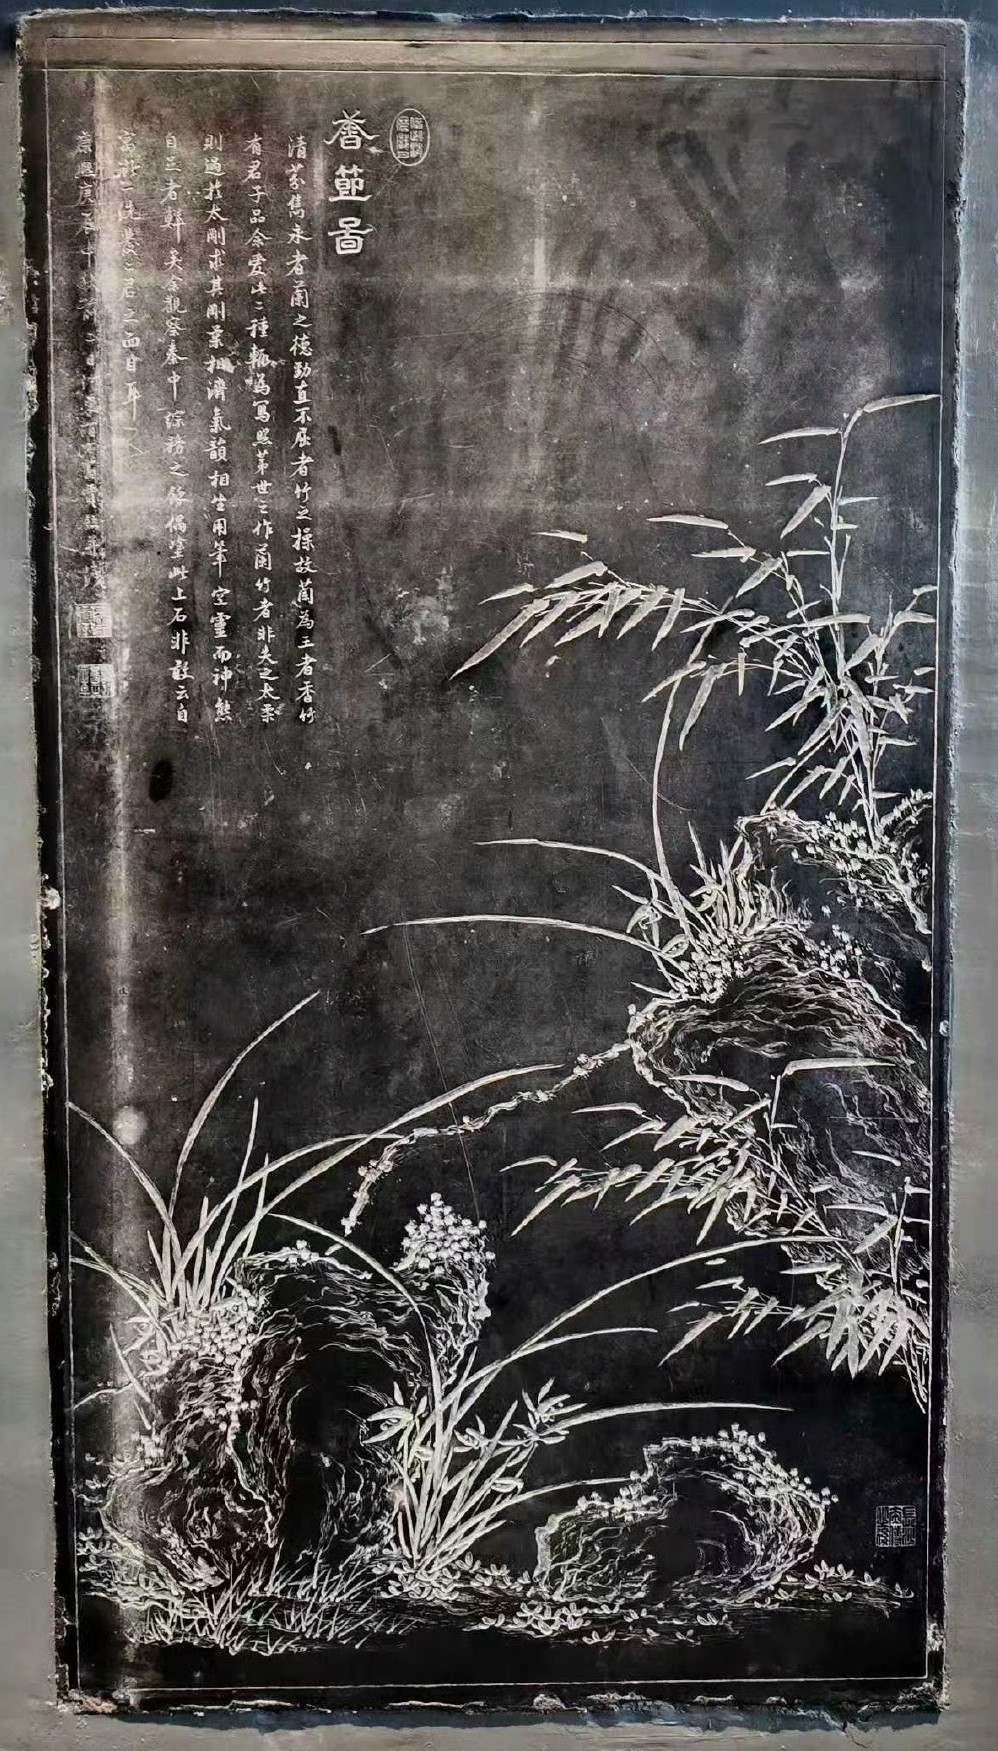 香節啚
清芬雋永者蘭之德勁直不屈者竹之操故蘭為王者香竹
有君子品余愛此二種輒為寫照第世之作蘭竹者非失之太柔
則過於太剛求其剛柔相濟氣韻相生用筆空靈而神態
自足者鮮矣余觀察秦中綜務之餘偶塗此上石非敢云自
寫
康熙庚辰